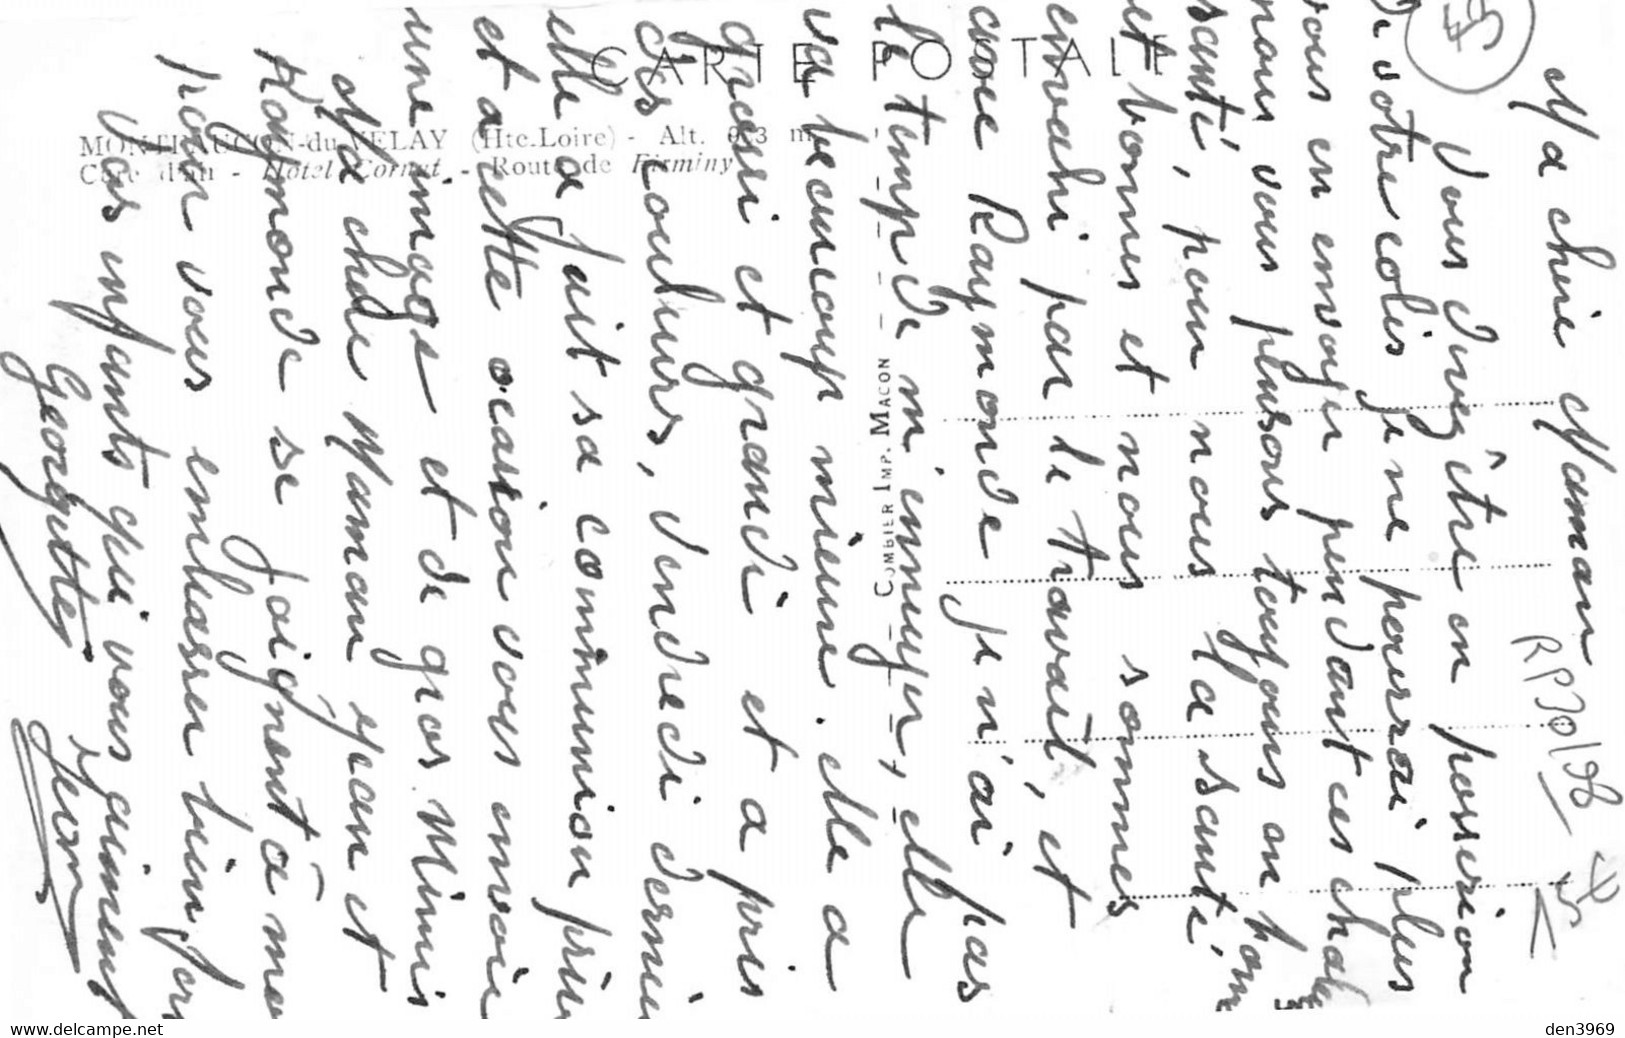 CARTE POSTALE
MONTFAUCON-du-VELAY (Hte-Loire) - Alt. m.
- Hôtel Cornet - Route de Firminy
COMBIER IMP. MACON
Ma chérie Maman
Vous devez être en possession
de votre colis je ne pourrai plus
vous en envoyer pendant ces chaleurs
nous vous pensons toujours en bonne
santé, pour nous la santé
est bonne et nous sommes
envahi par le travail, et
avec Raymonde je n'ai pas
le temps de m'ennuyer, elle
va beaucoup mieux. elle a
grossi et grandi et a pris
des couleurs, vendredi dernier
elle a fait sa communion privée
et a cette occasion vous envoie
une image et de gros Mimis
Ma chère Maman Jean et
Raymonde se joignent à moi
pour vous embrasser bien fort
Vos enfants qui vous aiment
Georgette Jean
RP30/98
den3969
www.delcampe.net